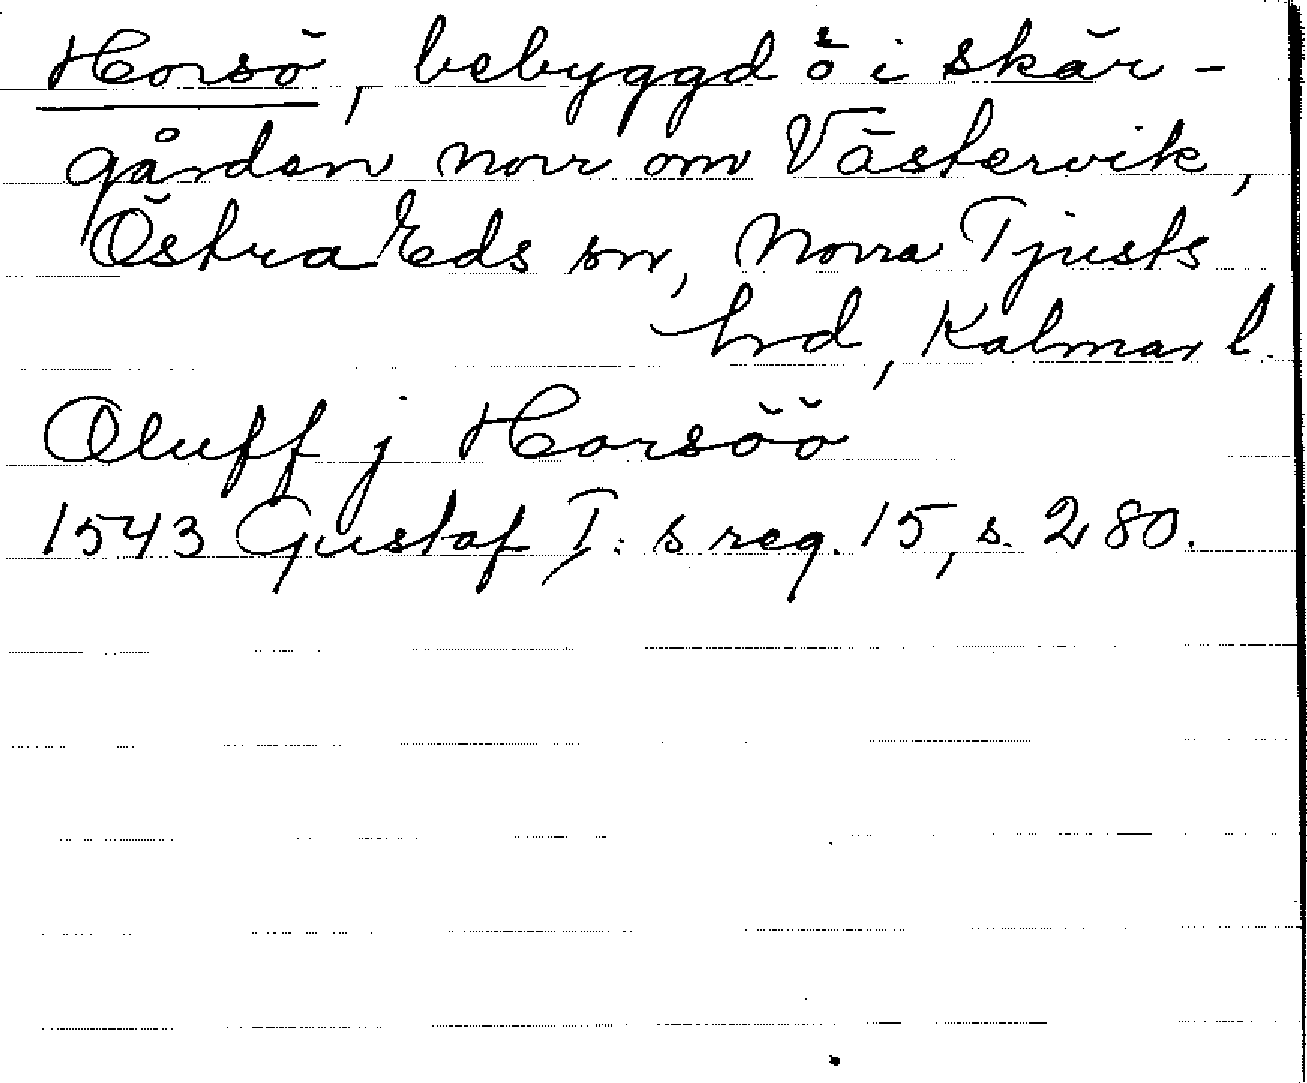 Horsö, bebyggd ö i skär-
gården norr om Västervik,
Östra Eds sn, Norra Tjusts
hrd, Kalmar l.
Oluff j Horsöö
1543 Gustaf I:s reg. 15, s. 280.